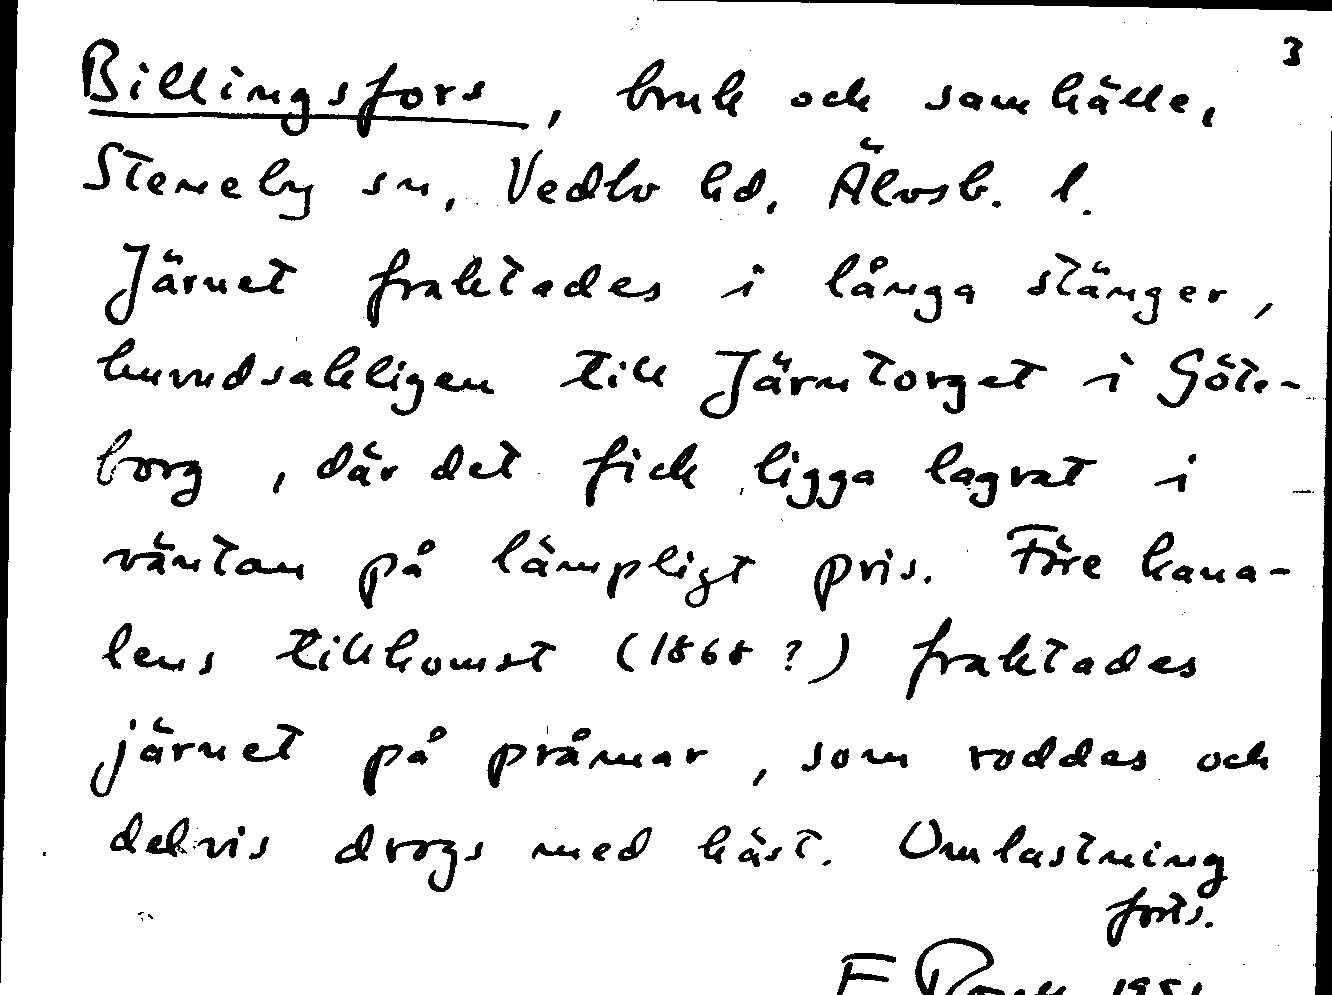 3
Billingsfors, bruk och samhälle,
Steneby sn, Vedbo hd, Älvsb. l.
Järnet fraktades i långa stänger,
huvudsakligen till Järntorget i Göte-
borg, där det fick ligga lagrat i
väntan på lämpligt pris. Före kana-
lens tillkomst (1868?) fraktades
järnet på pråmar, som roddes och
delvis drogs med häst. Omlastning
forts.